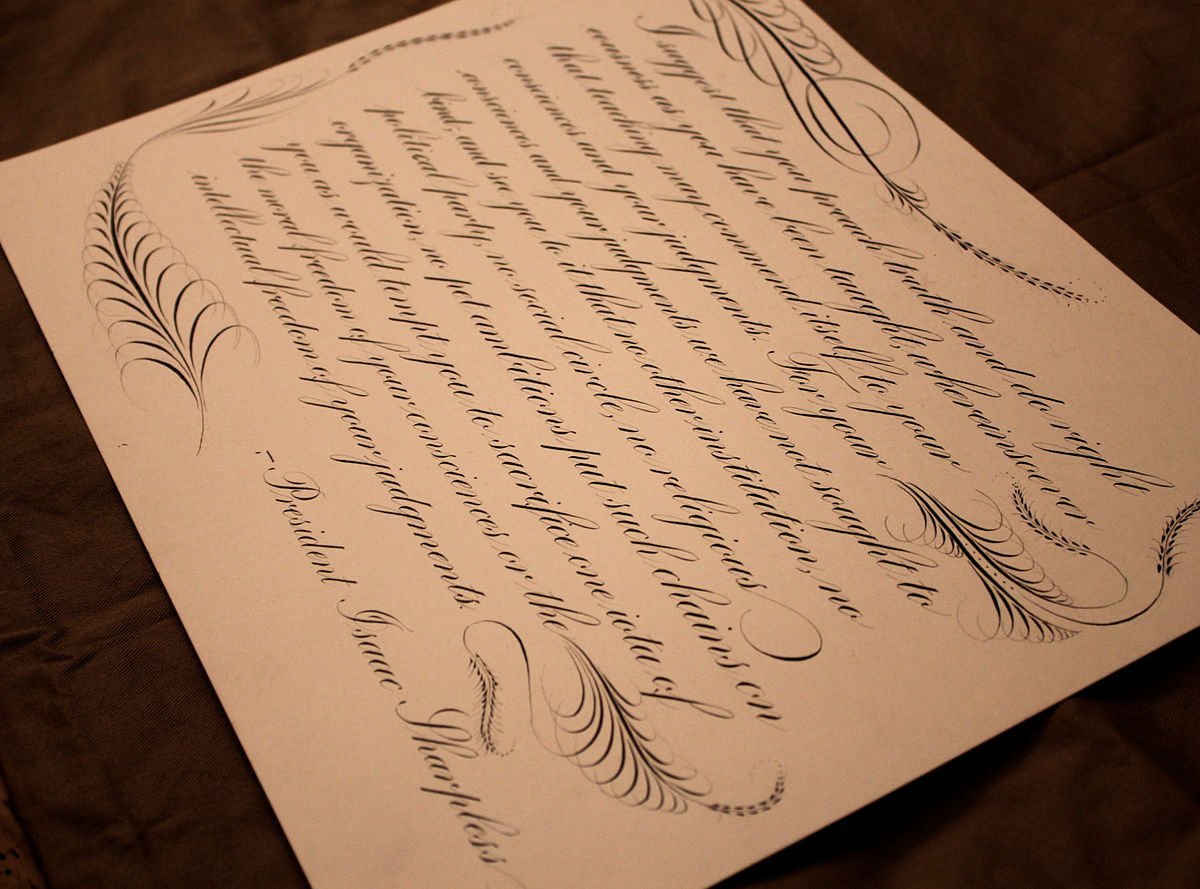 I suggest that you preach truth and do right
eousness as you have been taught, whereinsoever
that teaching may commend itself to your
consciences and your judgments. For your
consciences and your judgments we have not sought to
bind; and see you to it that no other institution, no
political party, no social circle, no religious
organization, no pet ambitions put such chains on
you as would tempt you to sacrifice one iota of
the moral freedom of your consciences or the
intellectual freedom of your judgments.
- President Isaac Sharpless